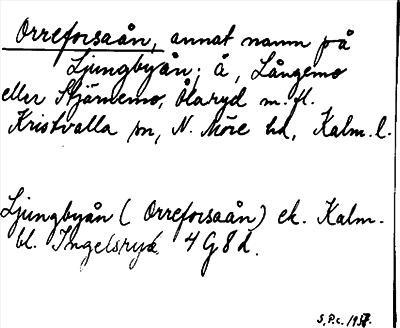 Orreforsaån, annat namn på
Ljungbyån; å, Långemo
eller Stjärnemo, Ålaryd m.fl.
Kristvalla sn, N. Möre hd, Kalm. l.
Ljungbyån (Orreforsaån) ek. Kalm.
bl. Ingelsryd 4G8d.
S.P.c. 1957.